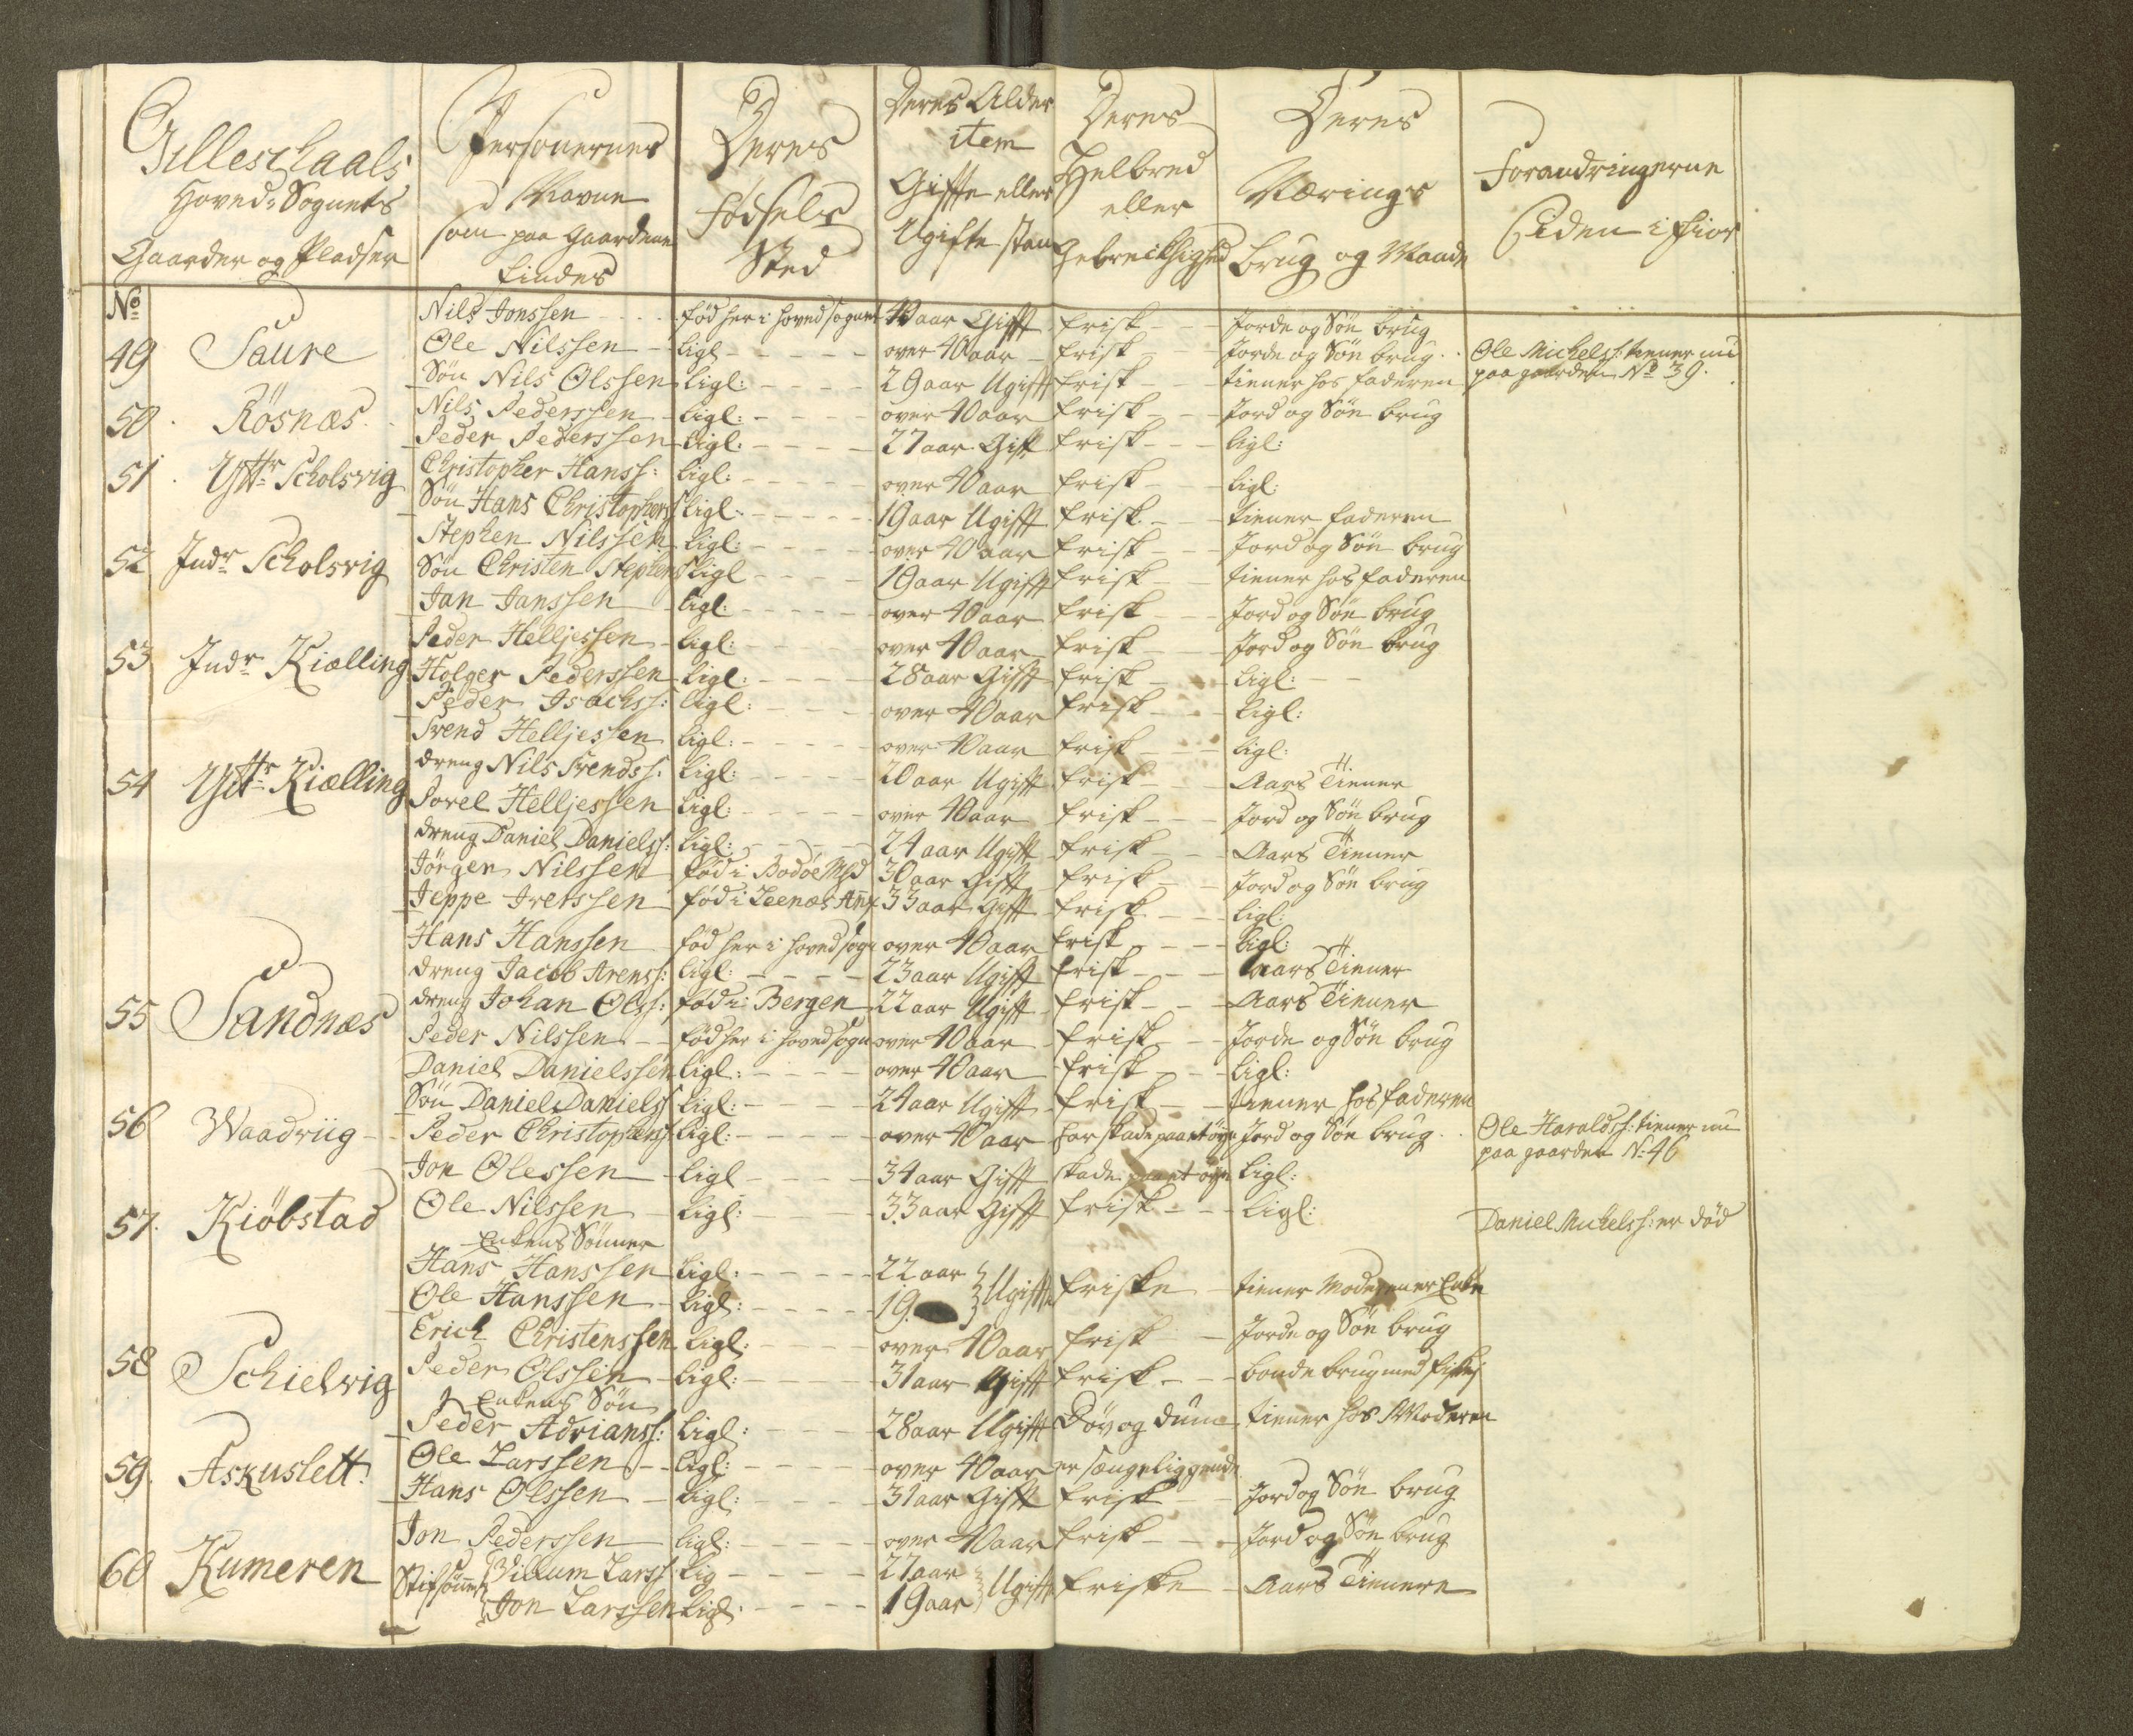 Gilleschaals Hoved-Sognets Gaarder og Pladser | Personernes Navne som paa Gaardene findes | Deres fødsels Sted | Deres Alder item Giffte eller Ugifte stan | Deres Helbred eller gebrecklighed | Deres Nærings Brug og Maade | Forandringerne Siden i fior
No
Nils Jonssen | fød her i hovedsognet | 40 aar Gifft | frisk | Jorde og Søe brug
49 Saure | Ole Nilssen | ligl | over 40 aar | frisk | Jorde og Søe brug | Ole Michelss: tiener nu
Søn Nils Olssen | ligl: | 29 aar Ugifft | frisk | tiener hos faderen | paa gaarden No 39.
50 Røsnæs | Nils Pederssen | ligl: | over 40 aar | frisk | Jord og Søe brug
Peder Pederssen | ligl: | 27 aar Gift | frisk | ligl:
51 Yttr Scholsvig | Christopher Hanss: | ligl: | over 40 aar | frisk | ligl:
Søn Hans Christophers | ligl: | 19 aar Ugifft | frisk | tiener faderen
52 Indr Scholsvig | Stephen Nilssen | ligl: | over 40 aar | frisk | Jord og Søe brug
Søn Christen Stephens | ligl | 19 aar Ugifft | frisk | tiener hos faderen
Jan Janssen | ligl: | over 40 aar | frisk | Jord og Søe brug
53 Indr Kiælling | Peder Helljessen | ligl: | over 40 aar | frisk | Jord og Søe brug
Holger Pederssen | ligl: | 28 aar Gifft | frisk | ligl:
Peder Isachss: | ligl: | over 40 aar | frisk | ligl:
Svend Helljessen | ligl: | over 40 aar | frisk | ligl:
54 Yttr Kiælling | dreng Nils Svendss: | ligl: | 20 aar Ugifft | frisk | Aars Tiener
Povel Helljessen | ligl: | over 40 aar | frisk | Jord og Søe brug
dreng Daniel Danielss: | ligl: | 24 aar Ugifft | frisk | Aars Tiener
Jørgen Nilssen | fød i Bodøe | 30 aar Gifft | frisk | Jord og Søe brug
Jeppe Iverssen | fød i Leenæs | 33 aar Gifft | frisk | ligl:
Hans Hanssen | fød her i hovedsogn | over 40 aar | frisk | ligl:
dreng Jacob Arenss: | ligl: | 23 aar Ugifft | frisk | aars Tiener
55 Sandnæs | dreng Johan Olss: | fød i Bergen | 22 aar Ugifft | frisk | Aars Tiener
Peder Nilssen | fød her i hovedsogn | over 40 aar | frisk | Jorde og Søe brug
Daniel Danielssen | ligl: | over 40 aar | frisk | ligl:
Søn Daniel Danielss | ligl: | 24 aar Ugifft | frisk | tiener hos faderen
56 Waadviig | Peder Christopherss | ligl: | over 40 aar | har skade paa et øye | Jord og Søe brug | Ole Haraldss: tiener nu
Jon Olessen | ligl | 34 aar Gifft | skade paa et øye | ligl: | paa gaarden N: 46
57. Kiøbstad | Ole Nilssen | ligl: | 33 aar Gifft | frisk | ligl: | Daniel Michelss: er død
Enkens Sønner
Hans Hanssen | ligl: | 22 aar | Ugiffte | friske | tiener Moderen er Enke
Ole Hanssen | ligl: | 19.
Erich Christenssen | ligl: | over 40 aar | frisk | Jorde og Søe brug
58 Schielvig | Peder Olssen | ligl: | 31 aar Gifft | frisk | bonde brug med fiskes
Enkens Søn
Peder Adrianss: | ligl: | 28 aar Ugifft | Døv og dum | tiener hos Moderen
59. Askuslett. | Ole Larssen | ligl: | over 40 aar | er sængeliggende
Hans Olssen | ligl: | 31 aar Gifft | frisk | Jord og Søe brug
Jon Pederssen | ligl: | over 40 aar | frisk | Jord og Søe brug
60 Kumeren | Stifsønner | Villum Larss | lig | 27 aar | Ugiffte | friske | Aars Tienere
Jon Larssen | ligl: | 19 aar